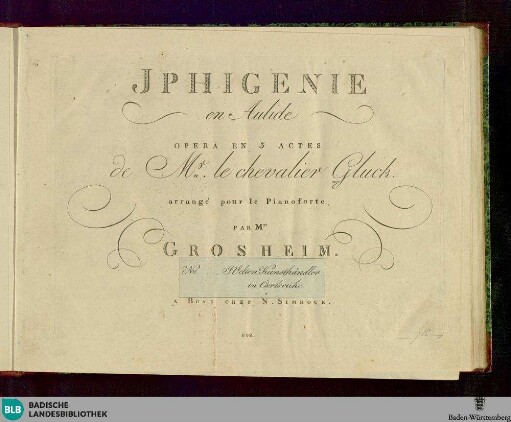 JPHIGENIE
en Aulide
OPERA EN 3 ACTES
de Mr. le chevalier Gluck.
arrangé pour le Pianoforte,
PAR Mr
GROSHEIM.
No Kunsthändler
in Carlsruhe
A BONN CHEZ N. SIMROCK.
BLB BADISCHE
LANDESBIBLIOTHEK
Baden-Württemberg